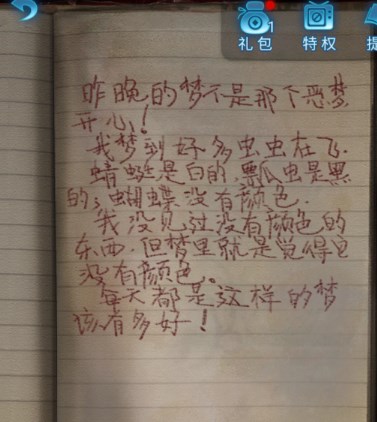 1
礼包
特权
提
昨晚的梦不是那个恶梦
开心！
我梦到好多虫虫在飞.
蜻蜓是白的，瓢虫是黑
的；蝴蝶没有颜色.
我没见过没有颜色的
东西.但梦里就是觉得它
没有颜色。
每天都是这样的梦
该有多好！